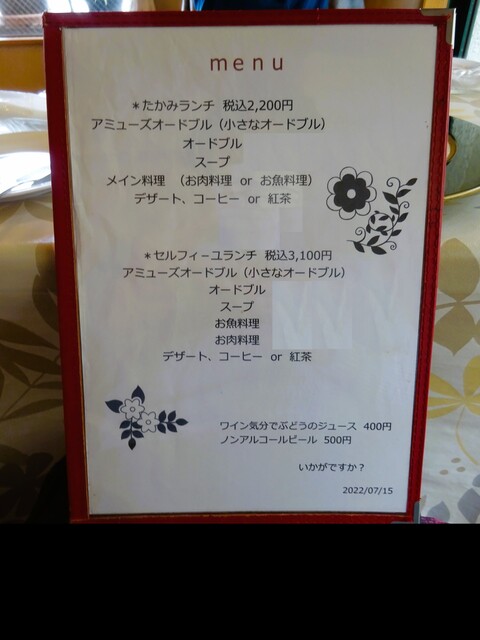 menu
＊たかみランチ 税込2,200円
アミューズオードブル（小さなオードブル）
オードブル
スープ
メイン料理 （お肉料理 or お魚料理）
デザート、コーヒー or 紅茶
＊セルフィーユランチ 税込3,100円
アミューズオードブル（小さなオードブル）
オードブル
スープ
お魚料理
お肉料理
デザート、コーヒー or 紅茶
ワイン気分でぶどうのジュース 400円
ノンアルコールビール 500円
いかがですか？
2022/07/15